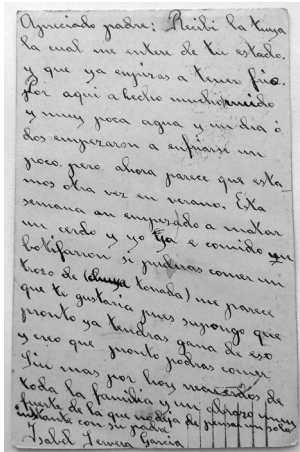 Apreciado padre: Recibi la tuya
la cual me entere de tu estado.
y que ya empiezas a tener frio.
Por aqui a hecho mucho
y muy poca agua y un dia ó
dos empezaron a enfiarse un
poco. pero ahora parece que esta-
mos otra vez en verano. Esta
semana an empezado a matar
un cerdo y yo ya e comido un
botifarron si pudieras comer un
trozo de tonada) me parece
que te gustaria pues supongo que
pronto ya tendras gana de eso
y creo que pronto podras comer.
Sin mas por hoy recuerdos de
toda la familia y un abrazo muy
fuerte de la que no deja de pensar un solo
instante con su padre
Isabel Cervera Garcia